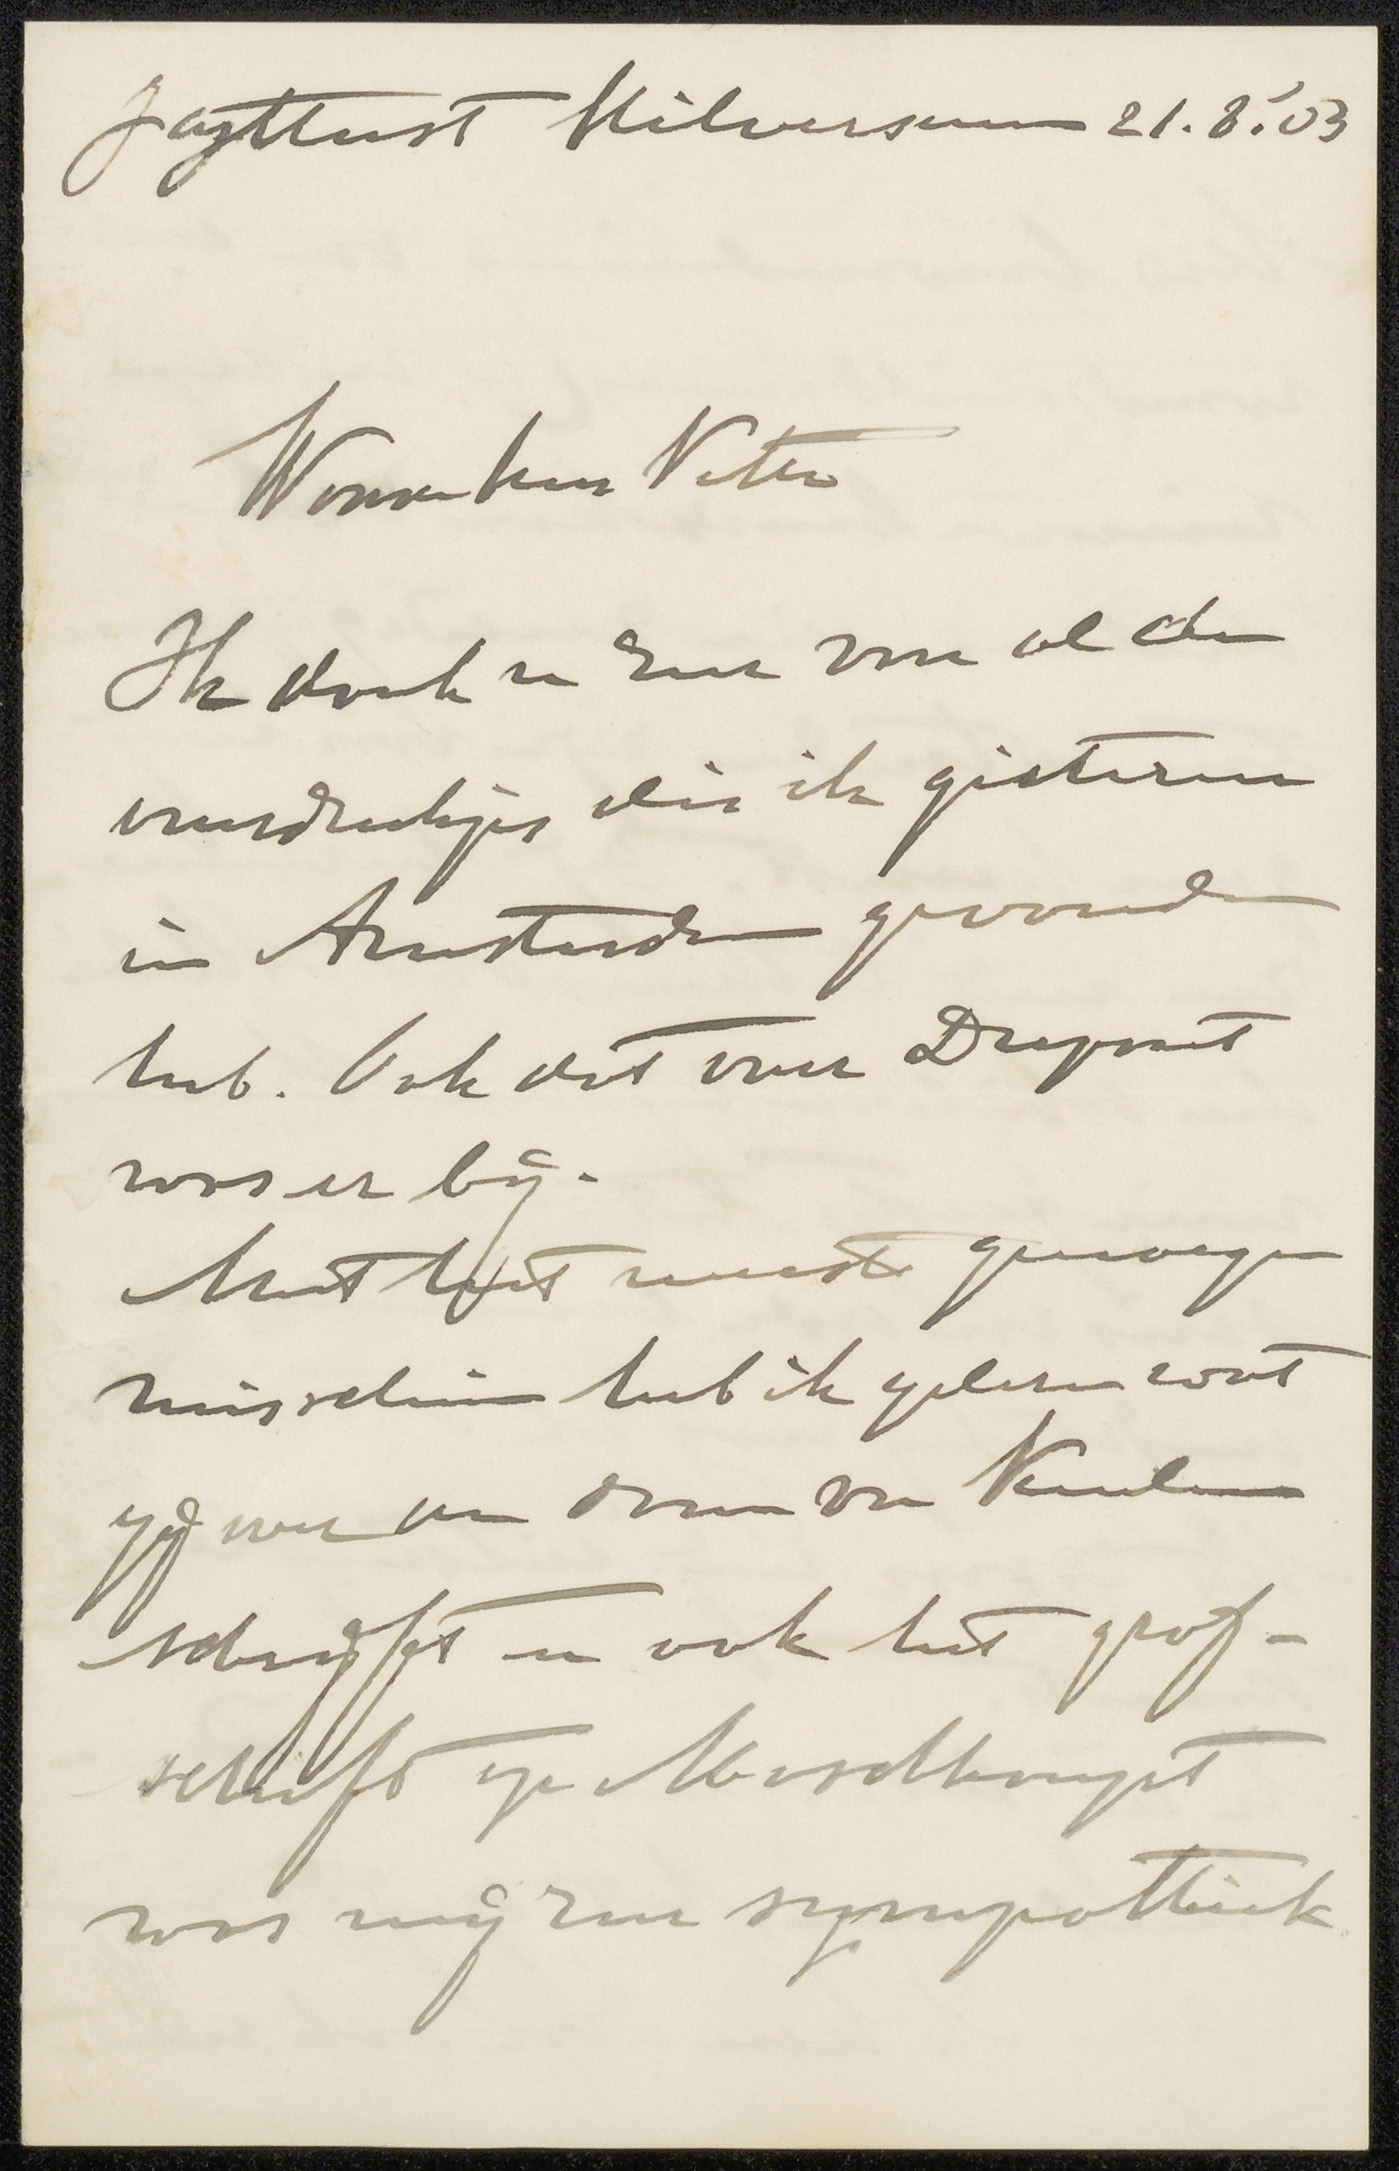 Jagtlust Hilversum 21.8.'03
Waarde Heer Veth
Ik dank u zeer voor al de
overdrukjes die ik gisteren
in Amsterdam gevonden
heb. Ook dat over Dupont
was er bij.
Met het meeste genoegen
misschien heb ik gelezen wat
gij over den armen van Keulen
schrijft en ook het graf-
schrift op Marolthouyst
was mij zeer sympathiek